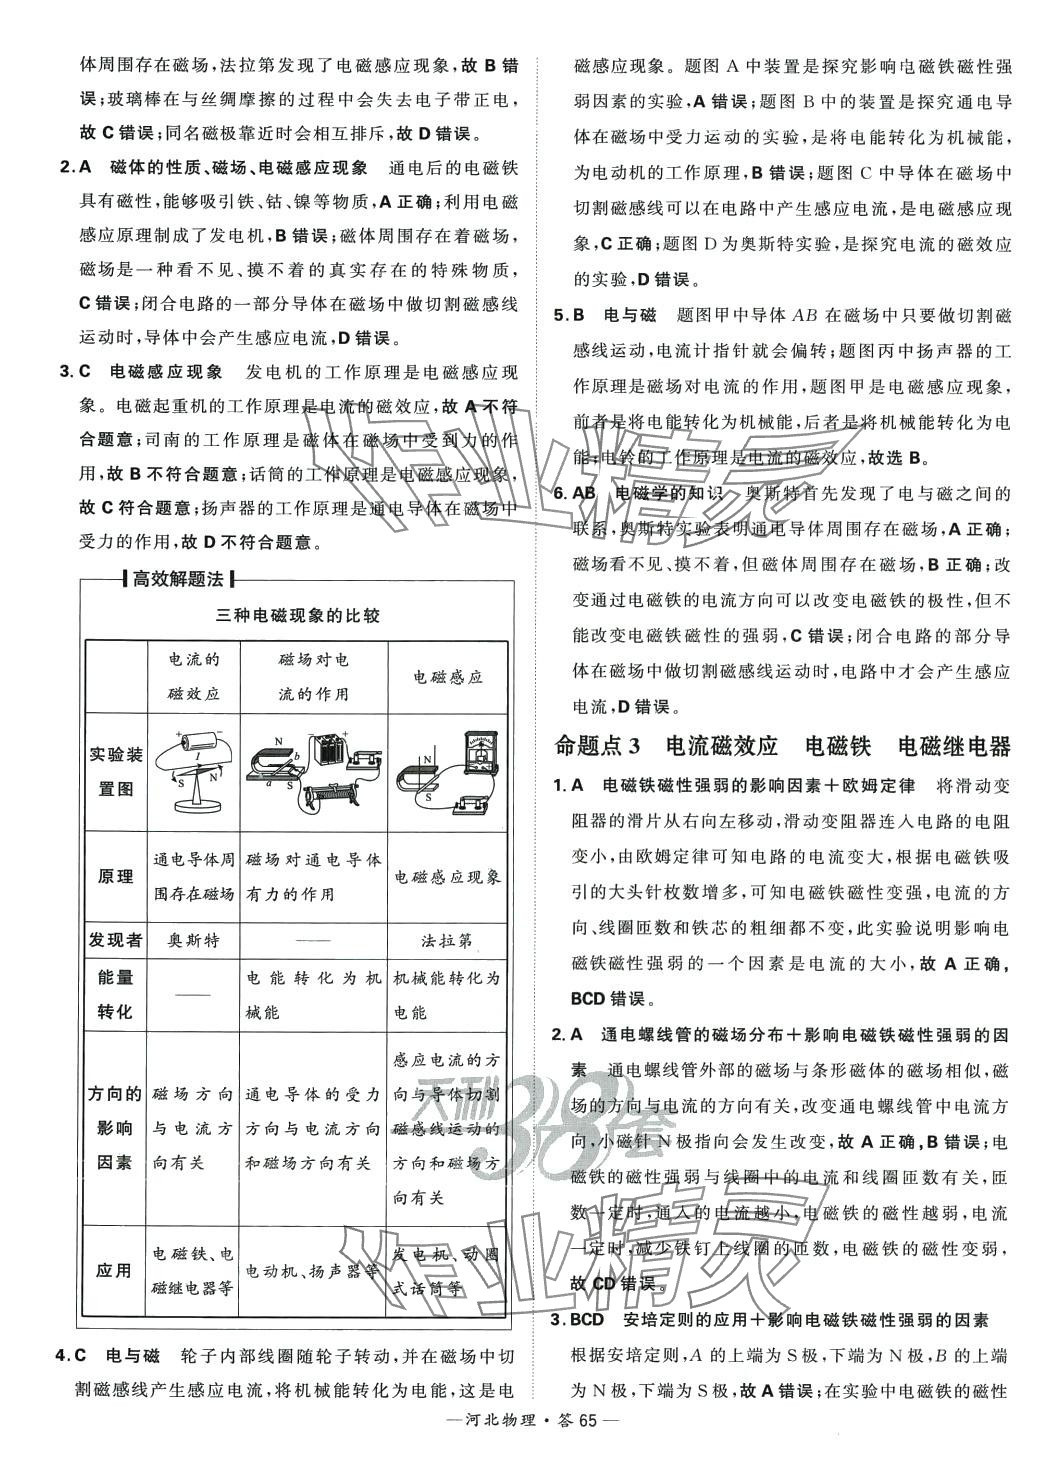 体周围存在磁场,法拉第发现了电磁感应现象,故B错
误;玻璃棒在与丝绸摩擦的过程中会失去电子带正电,
故C错误;同名磁极靠近时会相互排斥,故D错误。
2.A 磁体的性质、磁场、电磁感应现象 通电后的电磁铁
具有磁性,能够吸引铁、钴、镍等物质,A正确;利用电磁
感应原理制成了发电机,B错误;磁体周围存在着磁场,
磁场是一种看不见、摸不着的真实存在的特殊物质,
C错误;闭合电路的一部分导体在磁场中做切割磁感线
运动时,导体中会产生感应电流,D错误。
3.C 电磁感应现象 发电机的工作原理是电磁感应现
象。电磁起重机的工作原理是电流的磁效应,故A不符
合题意;司南的工作原理是磁体在磁场中受到力的作
用,故B不符合题意;话筒的工作原理是电磁感应现象,
故C符合题意;扬声器的工作原理是通电导体在磁场中
受力的作用,故D不符合题意。
高效解题法
三种电磁现象的比较
电流的
磁效应
磁场对电
流的作用
电磁感应
实验装
置图
+ − I S N
N a b S
N S
原理
通电导体周
围存在磁场
磁场对通电导体
有力的作用
电磁感应现象
发现者
奥斯特
——
法拉第
能量
转化
——
电能转化为机
械能
机械能转化为
电能
方向的
影响
因素
磁场方向
与电流方
向有关
通电导体的受力
方向与电流方向
和磁场方向有关
感应电流的方
向与导体切割
磁感线运动的
方向和磁场方
向有关
应用
电磁铁、电
磁继电器等
电动机、扬声器等
发电机、动圈
式话筒等
4.C 电与磁 轮子内部线圈随轮子转动,并在磁场中切
割磁感线产生感应电流,将机械能转化为电能,这是电
磁感应现象。题图A中装置是探究影响电磁铁磁性强
弱因素的实验,A错误;题图B中的装置是探究通电导
体在磁场中受力运动的实验,是将电能转化为机械能,
为电动机的工作原理,B错误;题图C中导体在磁场中
切割磁感线可以在电路中产生感应电流,是电磁感应现
象,C正确;题图D为奥斯特实验,是探究电流的磁效应
的实验,D错误。
5.B 电与磁 题图甲中导体AB在磁场中只要做切割磁
感线运动,电流计指针就会偏转;题图丙中扬声器的工
作原理是磁场对电流的作用,题图甲是电磁感应现象,
前者是将电能转化为机械能,后者是将机械能转化为电
能;电铃的工作原理是电流的磁效应,故选B。
6.AB 电磁学的知识 奥斯特首先发现了电与磁之间的
联系,奥斯特实验表明通电导体周围存在磁场,A正确;
磁场看不见、摸不着,但磁体周围存在磁场,B正确;改
变通过电磁铁的电流方向可以改变电磁铁的极性,但不
能改变电磁铁磁性的强弱,C错误;闭合电路的部分导
体在磁场中做切割磁感线运动时,电路中才会产生感应
电流,D错误。
命题点3 电流磁效应 电磁铁 电磁继电器
1.A 电磁铁磁性强弱的影响因素+欧姆定律 将滑动变
阻器的滑片从右向左移动,滑动变阻器连入电路的电阻
变小,由欧姆定律可知电路的电流变大,根据电磁铁吸
引的大头针枚数增多,可知电磁铁磁性变强,电流的方
向、线圈匝数和铁芯的粗细都不变,此实验说明影响电
磁铁磁性强弱的一个因素是电流的大小,故A正确,
BCD错误。
2.A 通电螺线管的磁场分布+影响电磁铁磁性强弱的因
素 通电螺线管外部的磁场与条形磁体的磁场相似,磁
场的方向与电流的方向有关,改变通电螺线管中电流方
向,小磁针N极指向会发生改变,故A正确,B错误;电
磁铁的磁性强弱与线圈中的电流和线圈匝数有关,匝
数一定时,通入的电流越小,电磁铁的磁性越弱,电流
一定时,减少铁钉上线圈的匝数,电磁铁的磁性变弱,
故CD错误。
3.BCD 安培定则的应用+影响电磁铁磁性强弱的因素
根据安培定则,A的上端为S极,下端为N极,B的上端
为N极,下端为S极,故A错误;在实验中电磁铁的磁性
作业精灵
天利38套
作业精灵
—河北物理·答65—